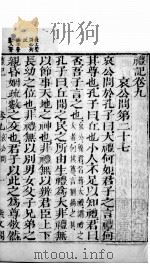 禮記卷九
哀公問第二十七
哀公問於孔子曰大禮何如君子之言禮何
其尊也孔子曰丘也小人不足以知禮君曰
否吾子言之也
孔子曰丘聞之民之所由生禮為大非禮無
以節事天地之神也非禮無以辨君臣上下
長幼之位也非禮無以別男女父子兄弟之
親昏姻疏數之交也君子以此之為尊敬然